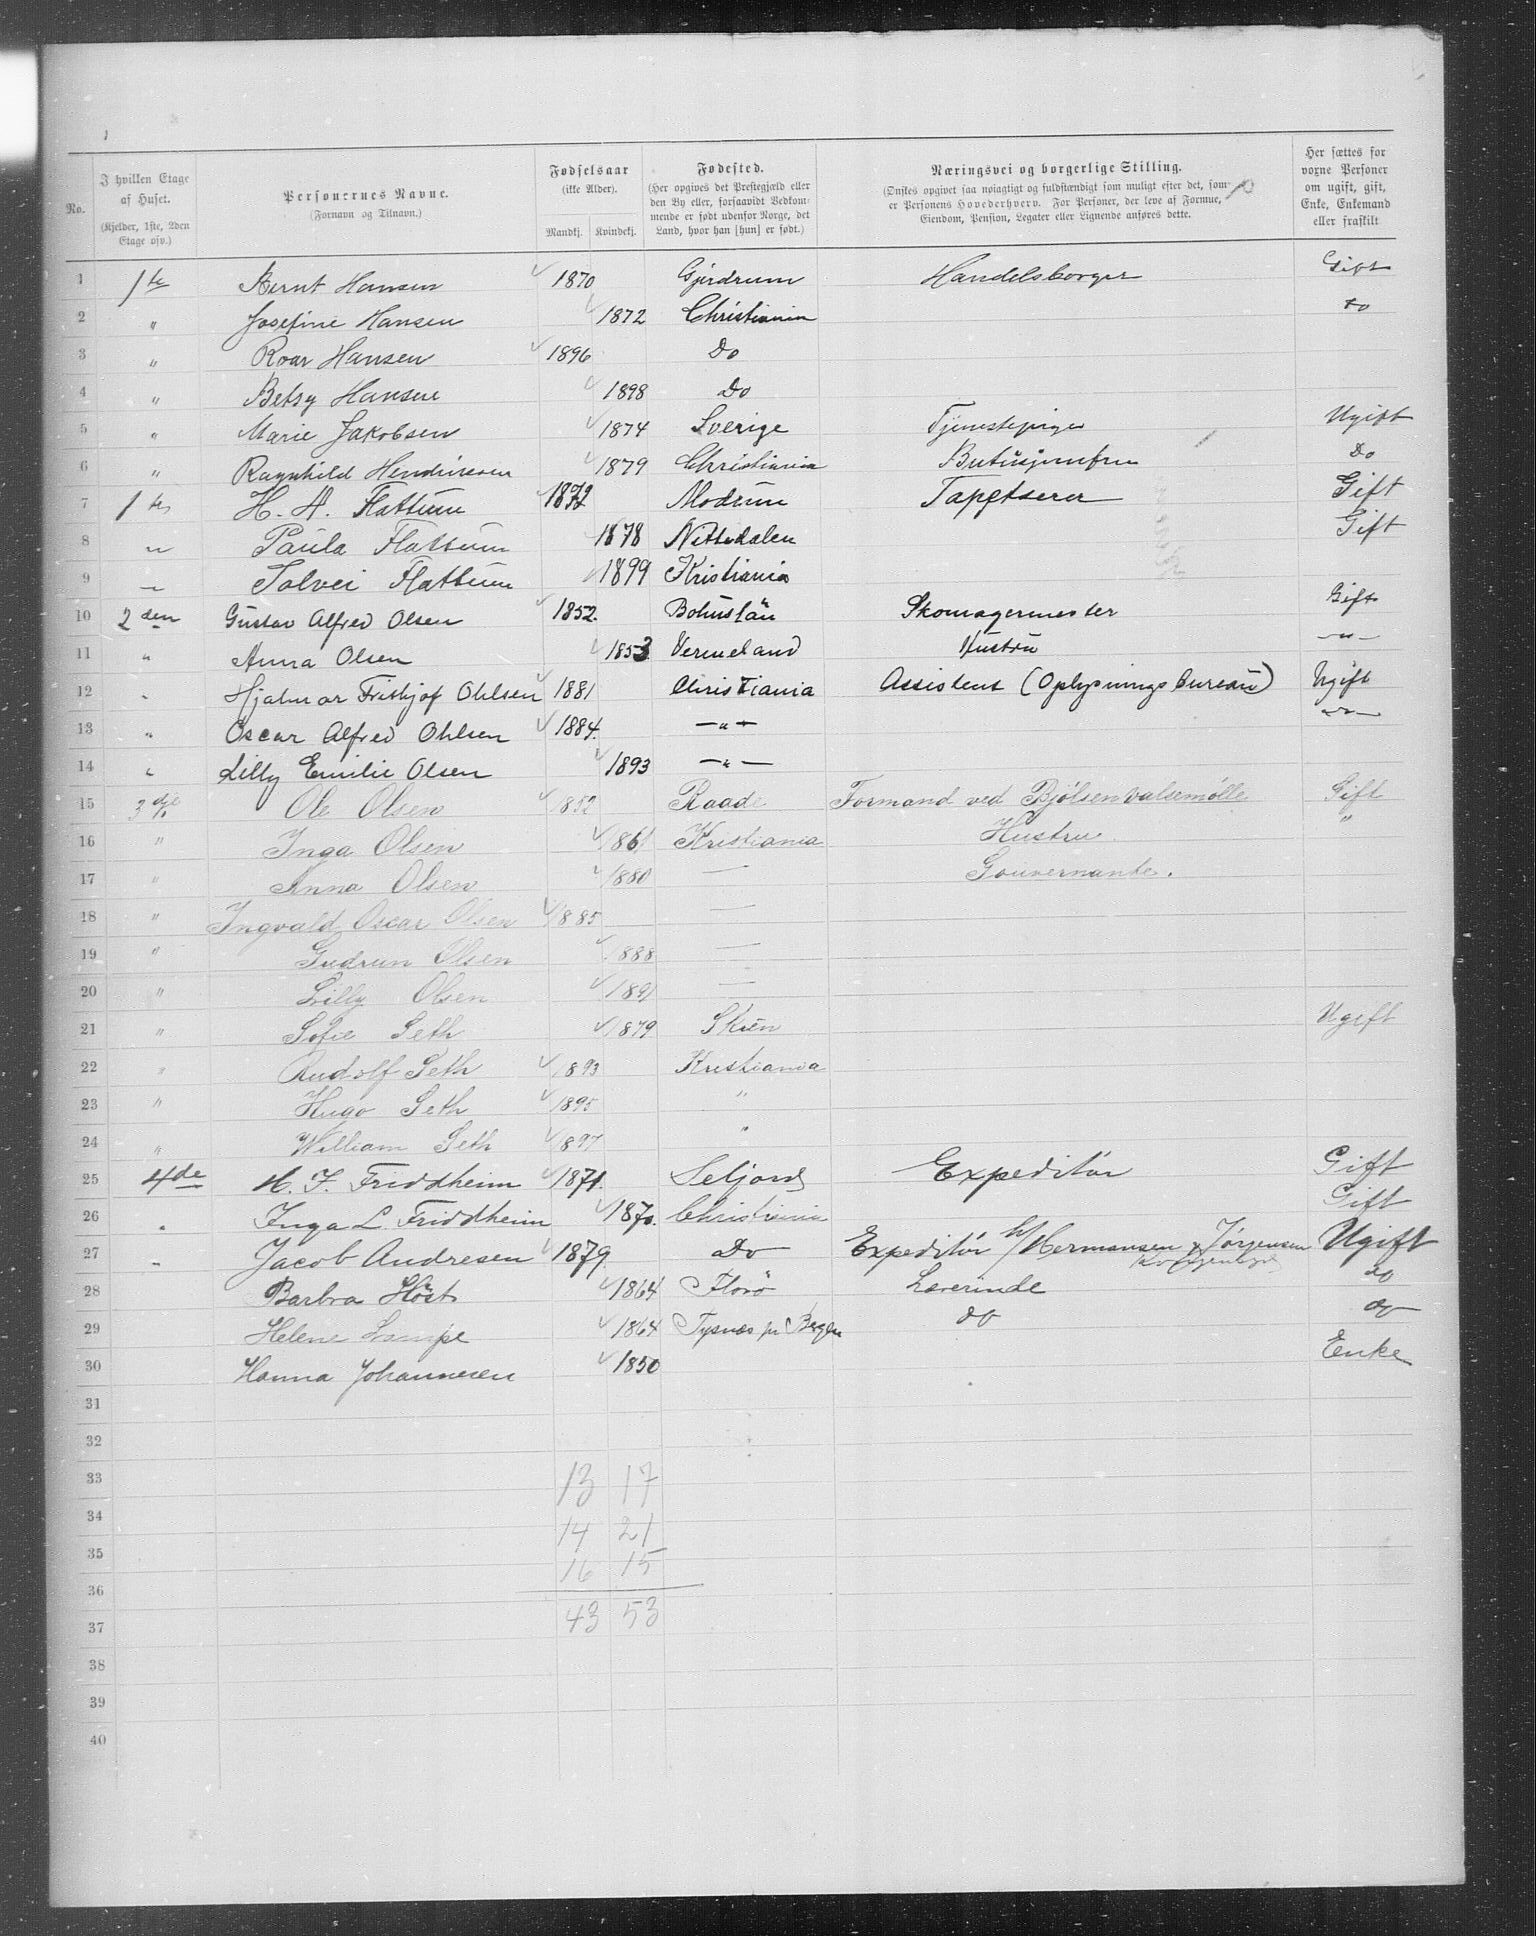 No. | I hvilken Etage af Huset. (Kjelder, 1ste, 2den Etage osv.) | Personernes Navne. (Fornavn og Tilnavn.) | Fødselsaar (ikke Alder). Mandkj. | Kvindekj. | Fødested. (Her opgives det Prestegjæld eller den By eller, forsaavidt Vedkommende er født udenfor Norge, det Land, hvor han [hun] er født.) | Næringsvei og borgerlige Stilling. (Ønskes opgivet saa nøiagtigt og fuldstændigt som muligt efter det, som er Personens Hovederhverv. For Personer, der leve af Formue, Eiendom, Pension, Legater eller Lignende anføres dette. | Her sættes for vorne Personer om ugift, gift, Enke, Enkemand eller fraskilt
1 1ste Bernt Hansen 1870 Gjerdrum Handelsborger Gift
2 " Josefine Hansen 1872 Christiania do
3 " Roar Hansen 1896 Do
4 " Betsy Hansen 1898 Do
5 " Marie Jakobsen 1874 Sverige Tjenestepige Ugift
6 " Ragnhild Hendriksen 1879 Christiania Butiksjomfru Do
7 1ste H. A. Flattum Modum Tapetserer Gift
8 " Paula Flattum 1878 Nittedalen Gift
9 " Solvei Flattum 1899 Kristiania
10 2den Gustav Alfred Olsen 1852. Bohuslän Skomagermester Gift
11 " Anna Olsen 1853 Vermeland Hustru —"—
12 " Hjalmar Frithjof Ohlsen 1881 Christiania Assistent (Oplysnings bureau) Ugift
13 " Oscar Alfred Ohlsen 1884. —"— —"—
14 " Lilly Emilie Olsen 1893 —"—
15 3dje Ole Olsen 1852 Raade Formand ved Bjølsen Valsemølle Gift
16 " Inga Olsen 1861 Kristiania Hustru "
17 " Anna Olsen 1880 — Gouvernante.
18 " Ingvald Oscar Olsen 1885 —
19 " Gudrun Olsen 1888 —
20 " Lilly Olsen 1891 —
21 " Sofie Seth 1879 Skien Ugift
22 " Rudolf Seth 1893 Kristiania
23 " Hugo Seth 1895 "
24 " William Seth 1897 "
25 4de H. J. Friddheim 1871. Seljord Expeditør Gift
26 " Inga L. Friddheim 1870. Christiania Gift
27 " Jacob Andresen 1879 Do Expeditør h/ Hermansen & Jørgensen Ugift
28 Barbra Höst 1864 Florö Lærerinde do
29 Helene Lampe 1864 Tysnæs pr Bergen do do
30 Hanna Johannesen 1850 Enke
31
32
33 13 17
34 14 21
35 16 15
36
37 43 53
38
39
40